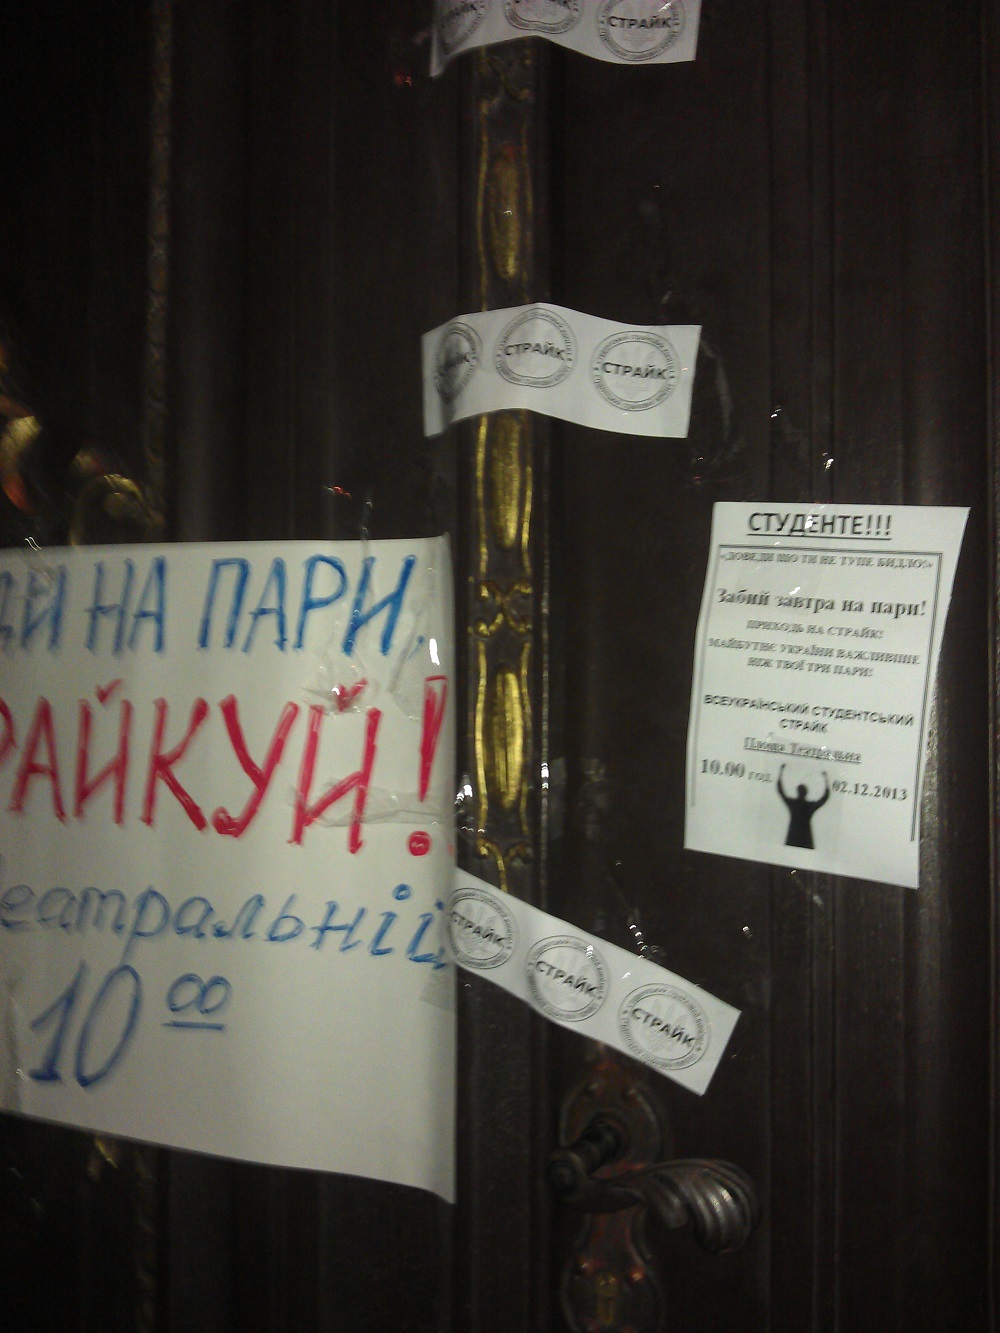 СТРАЙК
СТРАЙК
СТРАЙК
СТРАЙК
СТРАЙК
СТРАЙК
НА ПАРИ,
РАЙКУЙ!
еатральній
10 00
СТРАЙК
СТРАЙК
СТРАЙК
СТУДЕНТЕ!!!
«ДОВЕДИ ЩО ТИ НЕ ТУПЕ БИДЛО!»
Забий завтра на пари!
ПРИХОДЬ НА СТРАЙК!
МАЙБУТНЄ УКРАЇНИ ВАЖЛИВІШЕ
НІЖ ТВОЇ ТРИ ПАРИ!
ВСЕУКРАЇНСЬКИЙ СТУДЕНТСЬКИЙ
СТРАЙК
Площа Театральна
10.00 год.
02.12.2013